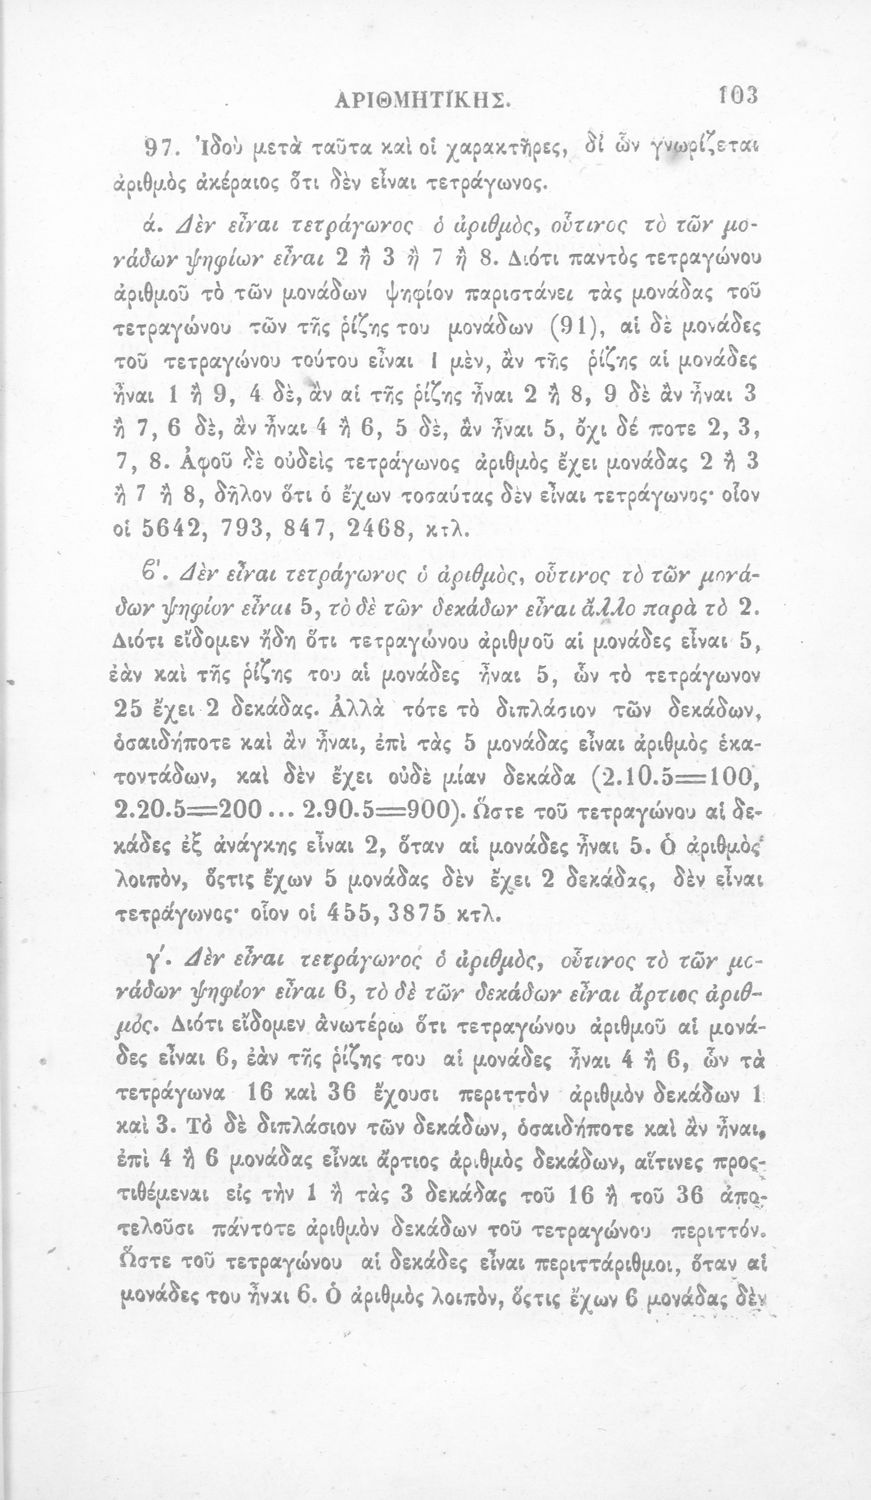 ΑΡΙΘΜΗΤΙΚΗΣ. 103
97. Ἰδοὺ μετὰ ταῦτα καὶ οἱ χαρακτῆρες, δἰ ὧν γνωρίζεται
ἀριθμὸς ἀκέραιος ὅτι δὲν εἶναι τετράγωνος.
ά. Δὲν εἶναι τετράγωνος ὁ ἀριθμὸς, οὗτινος τὸ τῶν μο-
νάδων ψηφίων εἶναι 2 ἢ 3 ἢ 7 ἢ 8. Διότι παντὸς τετραγώνου
ἀριθμοῦ τὸ τῶν μονάδων ψηφίον παριστάνει τὰς μονάδας τοῦ
τετραγώνου τῶν τῆς ῥίζης του μονάδων (91), αἱ δὲ μονάδες
τοῦ τετραγώνου τούτου εἶναι 1 μὲν, ἂν τῆς ῥίζης αἱ μονάδες
ἦναι 1 ἢ 9, 4 δὲ, ἂν αἱ τῆς ῥίζης ἦναι 2 ἢ 8, 9 δὲ ἂν ἦναι 3
ἢ 7, 6 δὲ, ἂν ἦναι 4 ἢ 6, 5 δὲ, ἂν ἦναι 5, ὄχι δέ ποτε 2, 3,
7, 8. Ἀφοῦ δὲ οὐδεὶς τετράγωνος ἀριθμὸς ἔχει μονάδας 2 ἢ 3
ἢ 7 ἢ 8, δῆλον ὅτι ὁ ἔχων τοσαύτας δὲν εἶναι τετράγωνος· οἷον
οἱ 5642, 793, 847, 2468, κτλ.
ϐ'. Δὲν εἶναι τετράγωνος ὁ ἀριθμὸς, οὗτινος τὸ τῶν μονά-
δων ψηφίον εἶναι 5, τὸ δὲ τῶν δεκάδων εἶναι ἄλλο παρὰ τὸ 2.
Διότι εἴδομεν ἤδη ὅτι τετραγώνου ἀριθμοῦ αἱ μονάδες εἶναι 5,
ἐὰν καὶ τῆς ῥίζης του αἱ μονάδες ἦναι 5, ὧν τὸ τετράγωνον
25 ἔχει 2 δεκάδας. Ἀλλὰ τότε τὸ διπλάσιον τῶν δεκάδων,
ὁσαιδήποτε καὶ ἂν ἦναι, ἐπὶ τὰς 5 μονάδας εἶναι ἀριθμὸς ἑκα-
τοντάδων, καὶ δὲν ἔχει οὐδὲ μίαν δεκάδα (2.10.5=100,
2.20.5=200 ... 2.90.5=900). Ὥστε τοῦ τετραγώνου αἱ δε-
κάδες ἐξ ἀνάγκης εἶναι 2, ὅταν αἱ μονάδες ἦναι 5. Ὁ ἀριθμὸς
λοιπὸν, ὅςτις ἔχων 5 μονάδας δὲν ἔχει 2 δεκάδας, δὲν εἶναι
τετράγωνος· οἷον οἱ 455, 3875 κτλ.
γ'. Δὲν εἶναι τετράγωνος ὁ ἀριθμὸς, οὗτινος τὸ τῶν μο-
νάδων ψηφίον εἶναι 6, τὸ δὲ τῶν δεκάδων εἶναι ἄρτιος ἀριθ-
μός. Διότι εἴδομεν ἀνωτέρω ὅτι τετραγώνου ἀριθμοῦ αἱ μονά-
δες εἶναι 6, ἐὰν τῆς ῥίζης του αἱ μονάδες ἦναι 4 ἢ 6, ὧν τὰ
τετράγωνα 16 καὶ 36 ἔχουσι περιττὸν ἀριθμὸν δεκάδων 1
καὶ 3. Τὸ δὲ διπλάσιον τῶν δεκάδων, ὁσαιδήποτε καὶ ἂν ἦναι,
ἐπὶ 4 ἢ 6 μονάδας εἶναι ἄρτιος ἀριθμὸς δεκάδων, αἵτινες προς-
τιθέμεναι εἰς τὴν 1 ἢ τὰς 3 δεκάδας τοῦ 16 ἢ τοῦ 36 ἀπο-
τελοῦσι πάντοτε ἀριθμὸν δεκάδων τοῦ τετραγώνου περιττόν.
Ὥστε τοῦ τετραγώνου αἱ δεκάδες εἶναι περιττάριθμοι, ὅταν αἱ
μονάδες του ἦναι 6. Ὁ ἀριθμὸς λοιπὸν, ὅςτις ἔχων 6 μονάδας δὲν